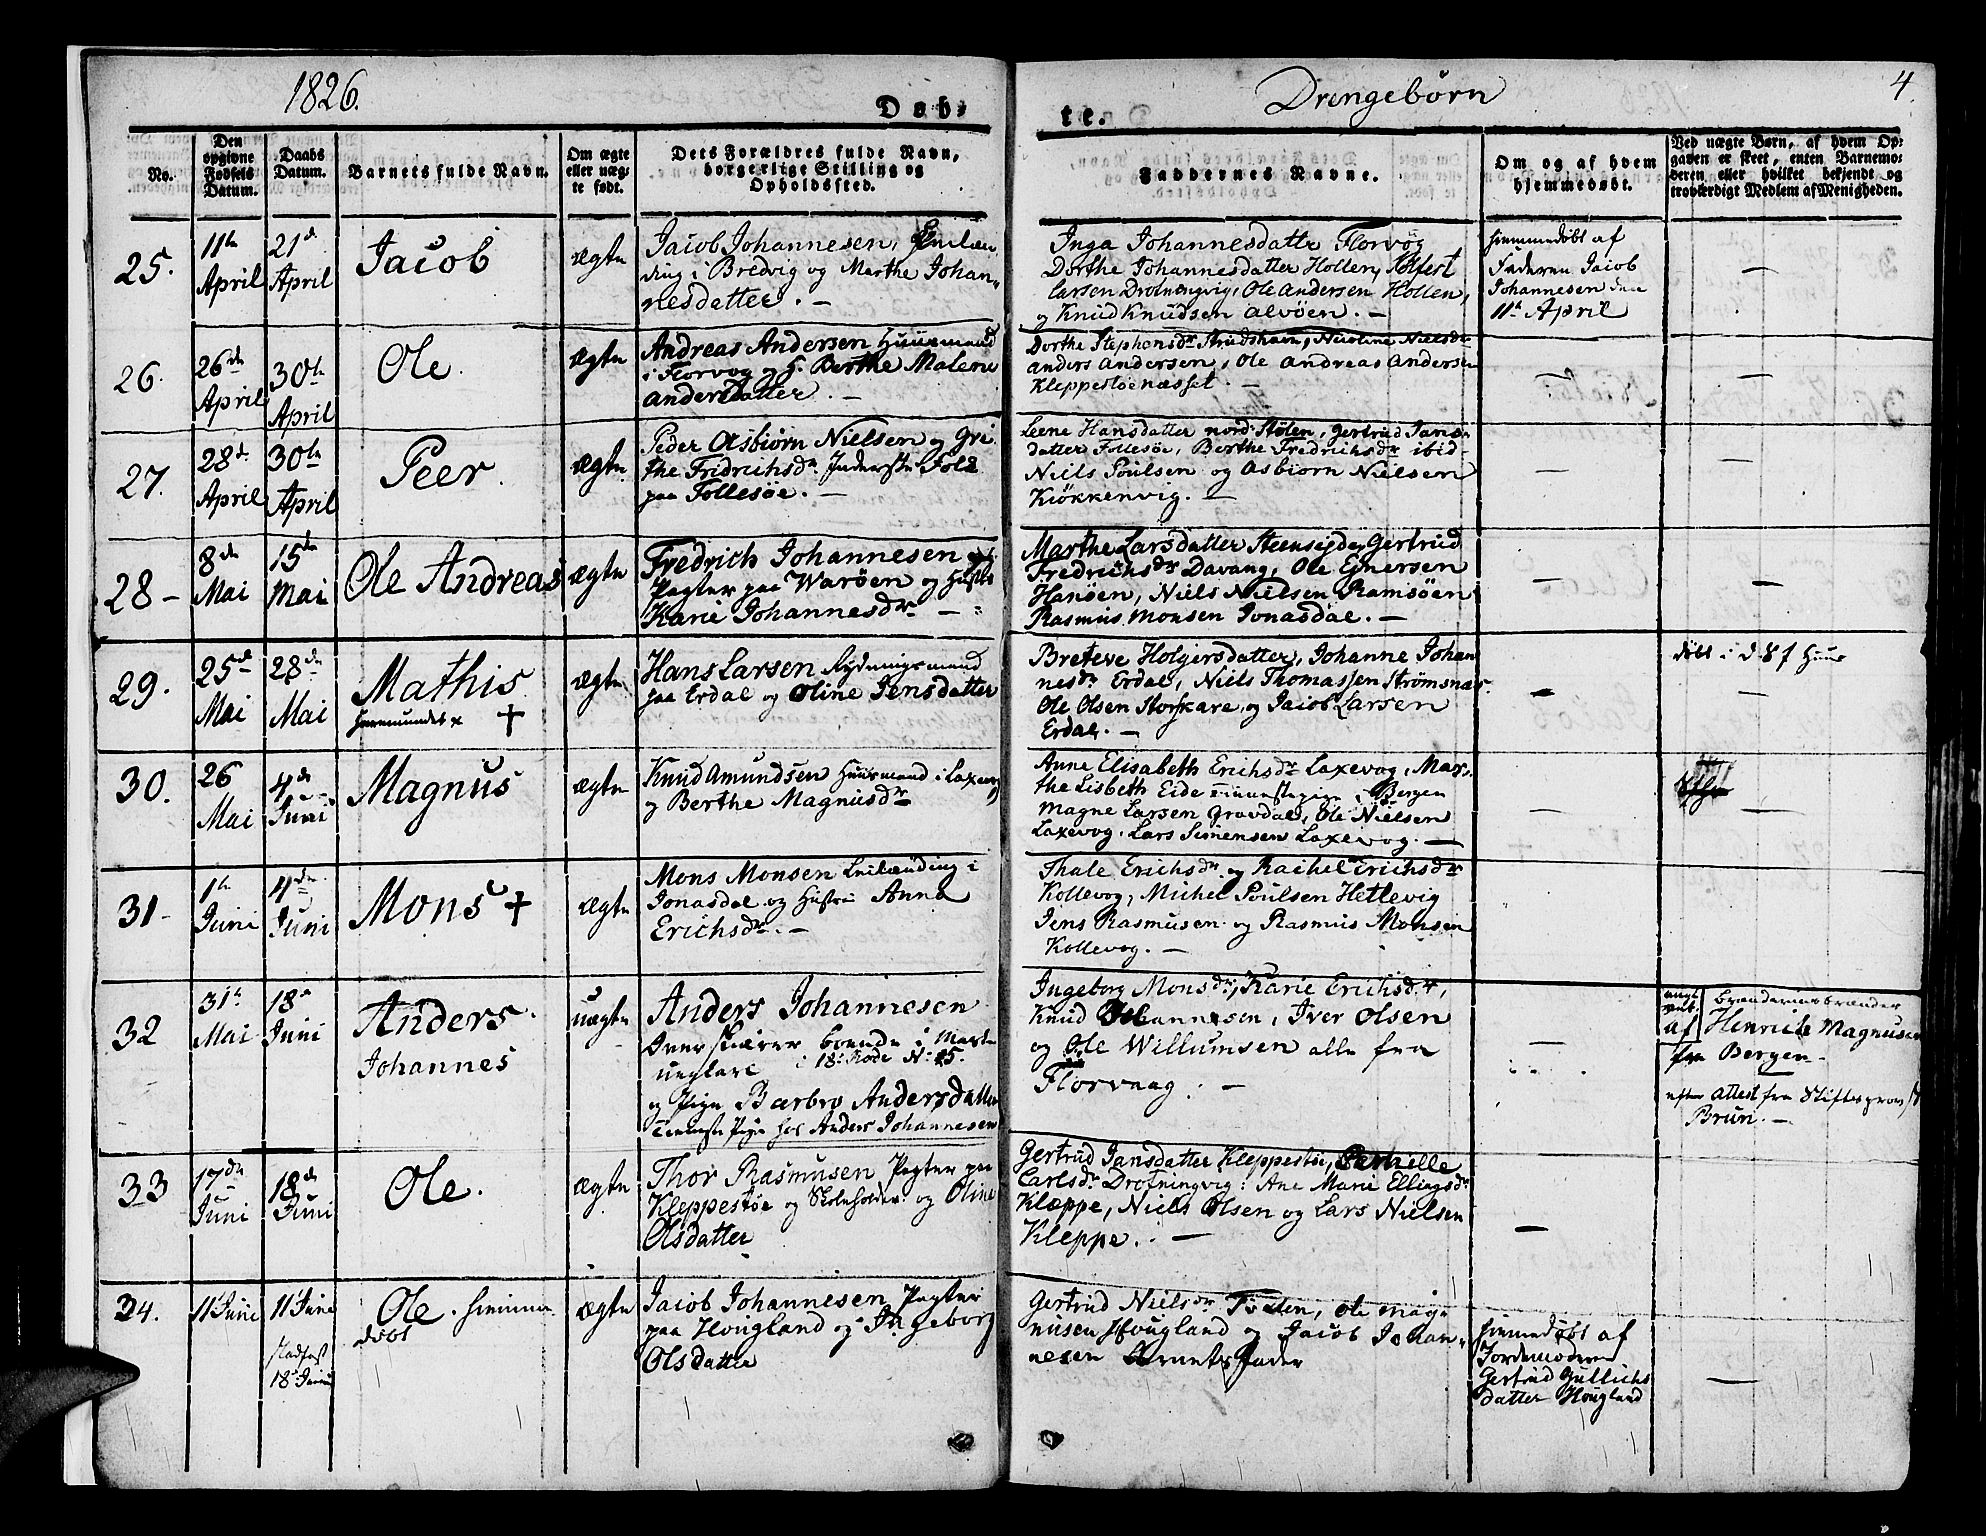 1826.
Døb-
te.
Drengebørn
4.
No.
Den opgivne Fødsels Datum.
Daabs Datum.
Barnets fulde Navn.
Om ægte eller uægte født.
Dets Forældres fulde Navn, borgerlige Stilling og Opholdssted.
Faddernes Navne.
Om og af hvem hjemmedøbt.
Ved uægte Børn, af hvem Opgaven er skeet, enten Barnemoderen eller hvilket bekjendt og troværdigt Medlem af Menigheden.
25.
11te April
21de April
Jacob
ægte
Jacob Johannesen,
i Bredvig og Marthe Johan-
nesdatter. —
Inga Johannesdatter Florvog
Dorthe Johannesdatter Hollen,
Larsen Drotningvig, Ole Andersen Hollen,
og Knud Knudsen Alvøen. —
hjemmedøbt af
Faderen Jacob
Johannesen den
11te April
—
26.
26de April
30te April
Ole.
ægte
Andreas Andersen Huusmand
i Florvog og H. Berthe Malene
Andersdatter. —
Dorthe Stephensdr Strudshavn, Nicoline Nielsdr
Anders Andersen, Ole Andreas Andersen
Kleppestøenæsset. —
—
—
27.
28de April
30te April
Peer.
ægte
Peder Asbiørn Nielsen og Gri-
the Fridrichsdr Inderste Folk
paa Follesøe. —
Leene Hansdatter nord Stølen, Gertrud Jans-
datter Follesøe, Berthe Fredrichsdr ibid-
Niels Poulsen og Asbiørn Nielsen
Kiøkkenvig. —
—
—
28 —
8de Mai
15de Mai
Ole Andreas
ægte
Fredrich Johannesen
Pagter paa Warøen og Hustr
Karie Johannesdr —
Marthe Larsdatter Gertrud
Fredrichsdr Davang, Ole Ejnersen
Hanøen, Niels Nielsen Ramsøen
Rasmus Monsen Jonasdal. —
—
—
29.
25de Mai
28de Mai
Mathis
†
ægte
Hans Larsen Rydningsmand
paa Erdal og Oline Jensdatter
Breteve Holgersdatter, Johanne Johan
nesdr Erdal, Niels Thomassen Strømsnæs.
Ole Olsen Storskare, og Jacob Larsen
Erdal. —
—
døbt i Huus
—
30.
26 Mai
4de Juni
Magnus
ægte
Knud Amundsen Huusmand i Laxevog
og Berthe Magnusdr
Anne Elisabeth Erichsdr Laxevog, Mar-
the Lisbeth Eide Bergen
Magne Larsen Gravdal, Ole Nielsen
Laxevog. Lars Simensen Laxevog. —
—
—
31 -
1te Juni
4de Juni
Mons †
ægte
Mons Monsen Leilænding i
Jonasdal og Hustr Anna
Erichsdr. —
Thale Erichsdr og Rachel Erichsdr
Kollevog, Michel Poulsen Hetlevig
Jens Rasmusen og Rasmus Monsen
Kollevog. —
32
31te Mai
18de Juni
Anders
Johannes
uægte
Anders Johannesen
boende i
i 18de Rode No 25.
og Pige Barbro Andersdatter
Tieneste Pige hos Anders Johannesen
Ingeborg Monsdr, Karie Erichsdr,
Knud Johannesen, Iver Olsen
og Ole Willumsen alle fra
Florvaag. —
—
af
Henrich Magnusen
fra Bergen.
efter Attest fra Stiftsprovst
Brun. —
33
17de Juni
18de Juni
Ole.
ægte
Thor Rasmusen Pagter paa
Kleppestøe og Skoleholder og Oline
Olsdatter
Gertrud Jansdatter Kleppestøe, Pernelle
Carlsdr Drotningvig. Ane Marie Ellingsdr
Klæppe, Niels Olsen og Lars Nielsen
Kleppe. —
—
34.
11 Juni
11 Juni
stadfæst
18 Juni
Ole. hiemme
døbt
ægte
Jacob Johannesen Pagter
paa Hougland og Ingeborg
Olsdatter
Gertrud Nielsdr Ole Mag-
nusen Hougland og Jacob Johan-
nesen Barnets Fader
hiemmedøbt af
Jordemoderen
Gertrud Gullichs
datter Hougland
—